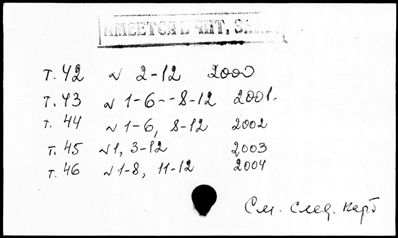 ИМЕЕТСЯ В ЧИТ. ЗАЛЕ
т. 42 № 2-12 2000
т. 43 № 1-6--8-12 2001.
т. 44 № 1-6, 8-12 2002
т. 45 № 1, 3-12 2003
т. 46 № 1-8, 11-12 2004
См. след. карт